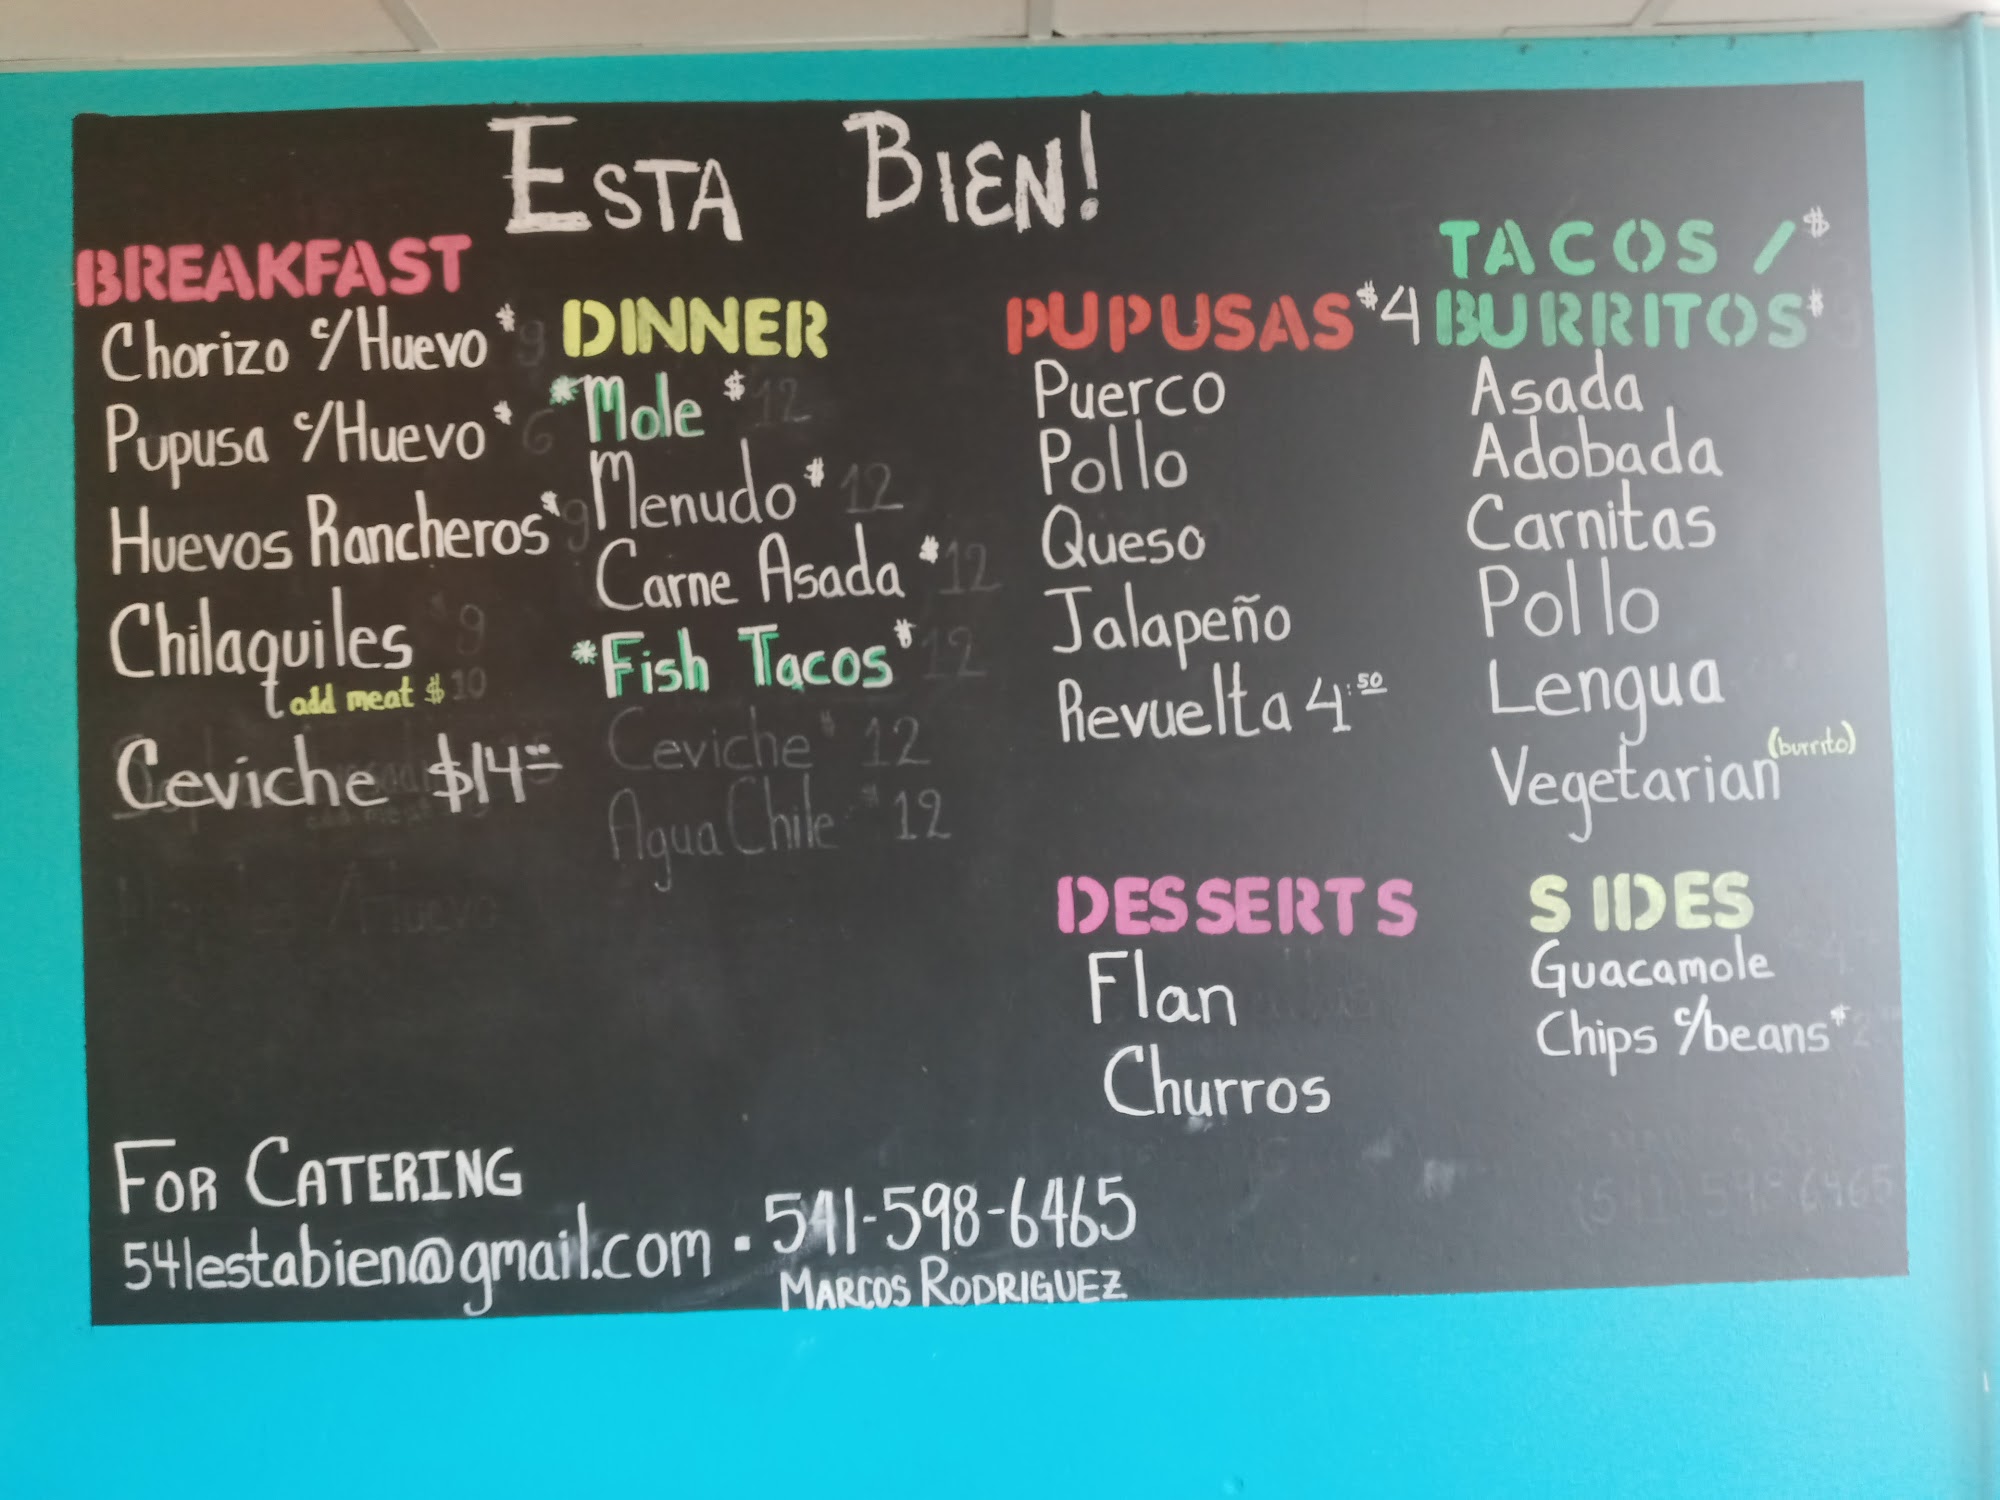 ESTA BIEN!
BREAKFAST
Chorizo c/Huevo $ 9
Pupusa c/Huevo $ 6
Huevos Rancheros $ 9
Chilaquiles 9
add meat $ 10
Ceviche $14=
DINNER
*Mole $ 12
Menudo $ 12
Carne Asada $ 12
*Fish Tacos $ 12
Ceviche $ 12
Agua Chile $ 12
PUPUSAS $4
Puerco
Pollo
Queso
Jalapeño
Revuelta 4.50
TACOS / $
BURRITOS $
Asada
Adobada
Carnitas
Pollo
Lengua
Vegetarian (burrito)
DESSERTS
Flan
Churros
SIDES
Guacamole
Chips c/beans $ 2
FOR CATERING
541estabien@gmail.com • 541-598-6465
MARCOS RODRIGUEZ